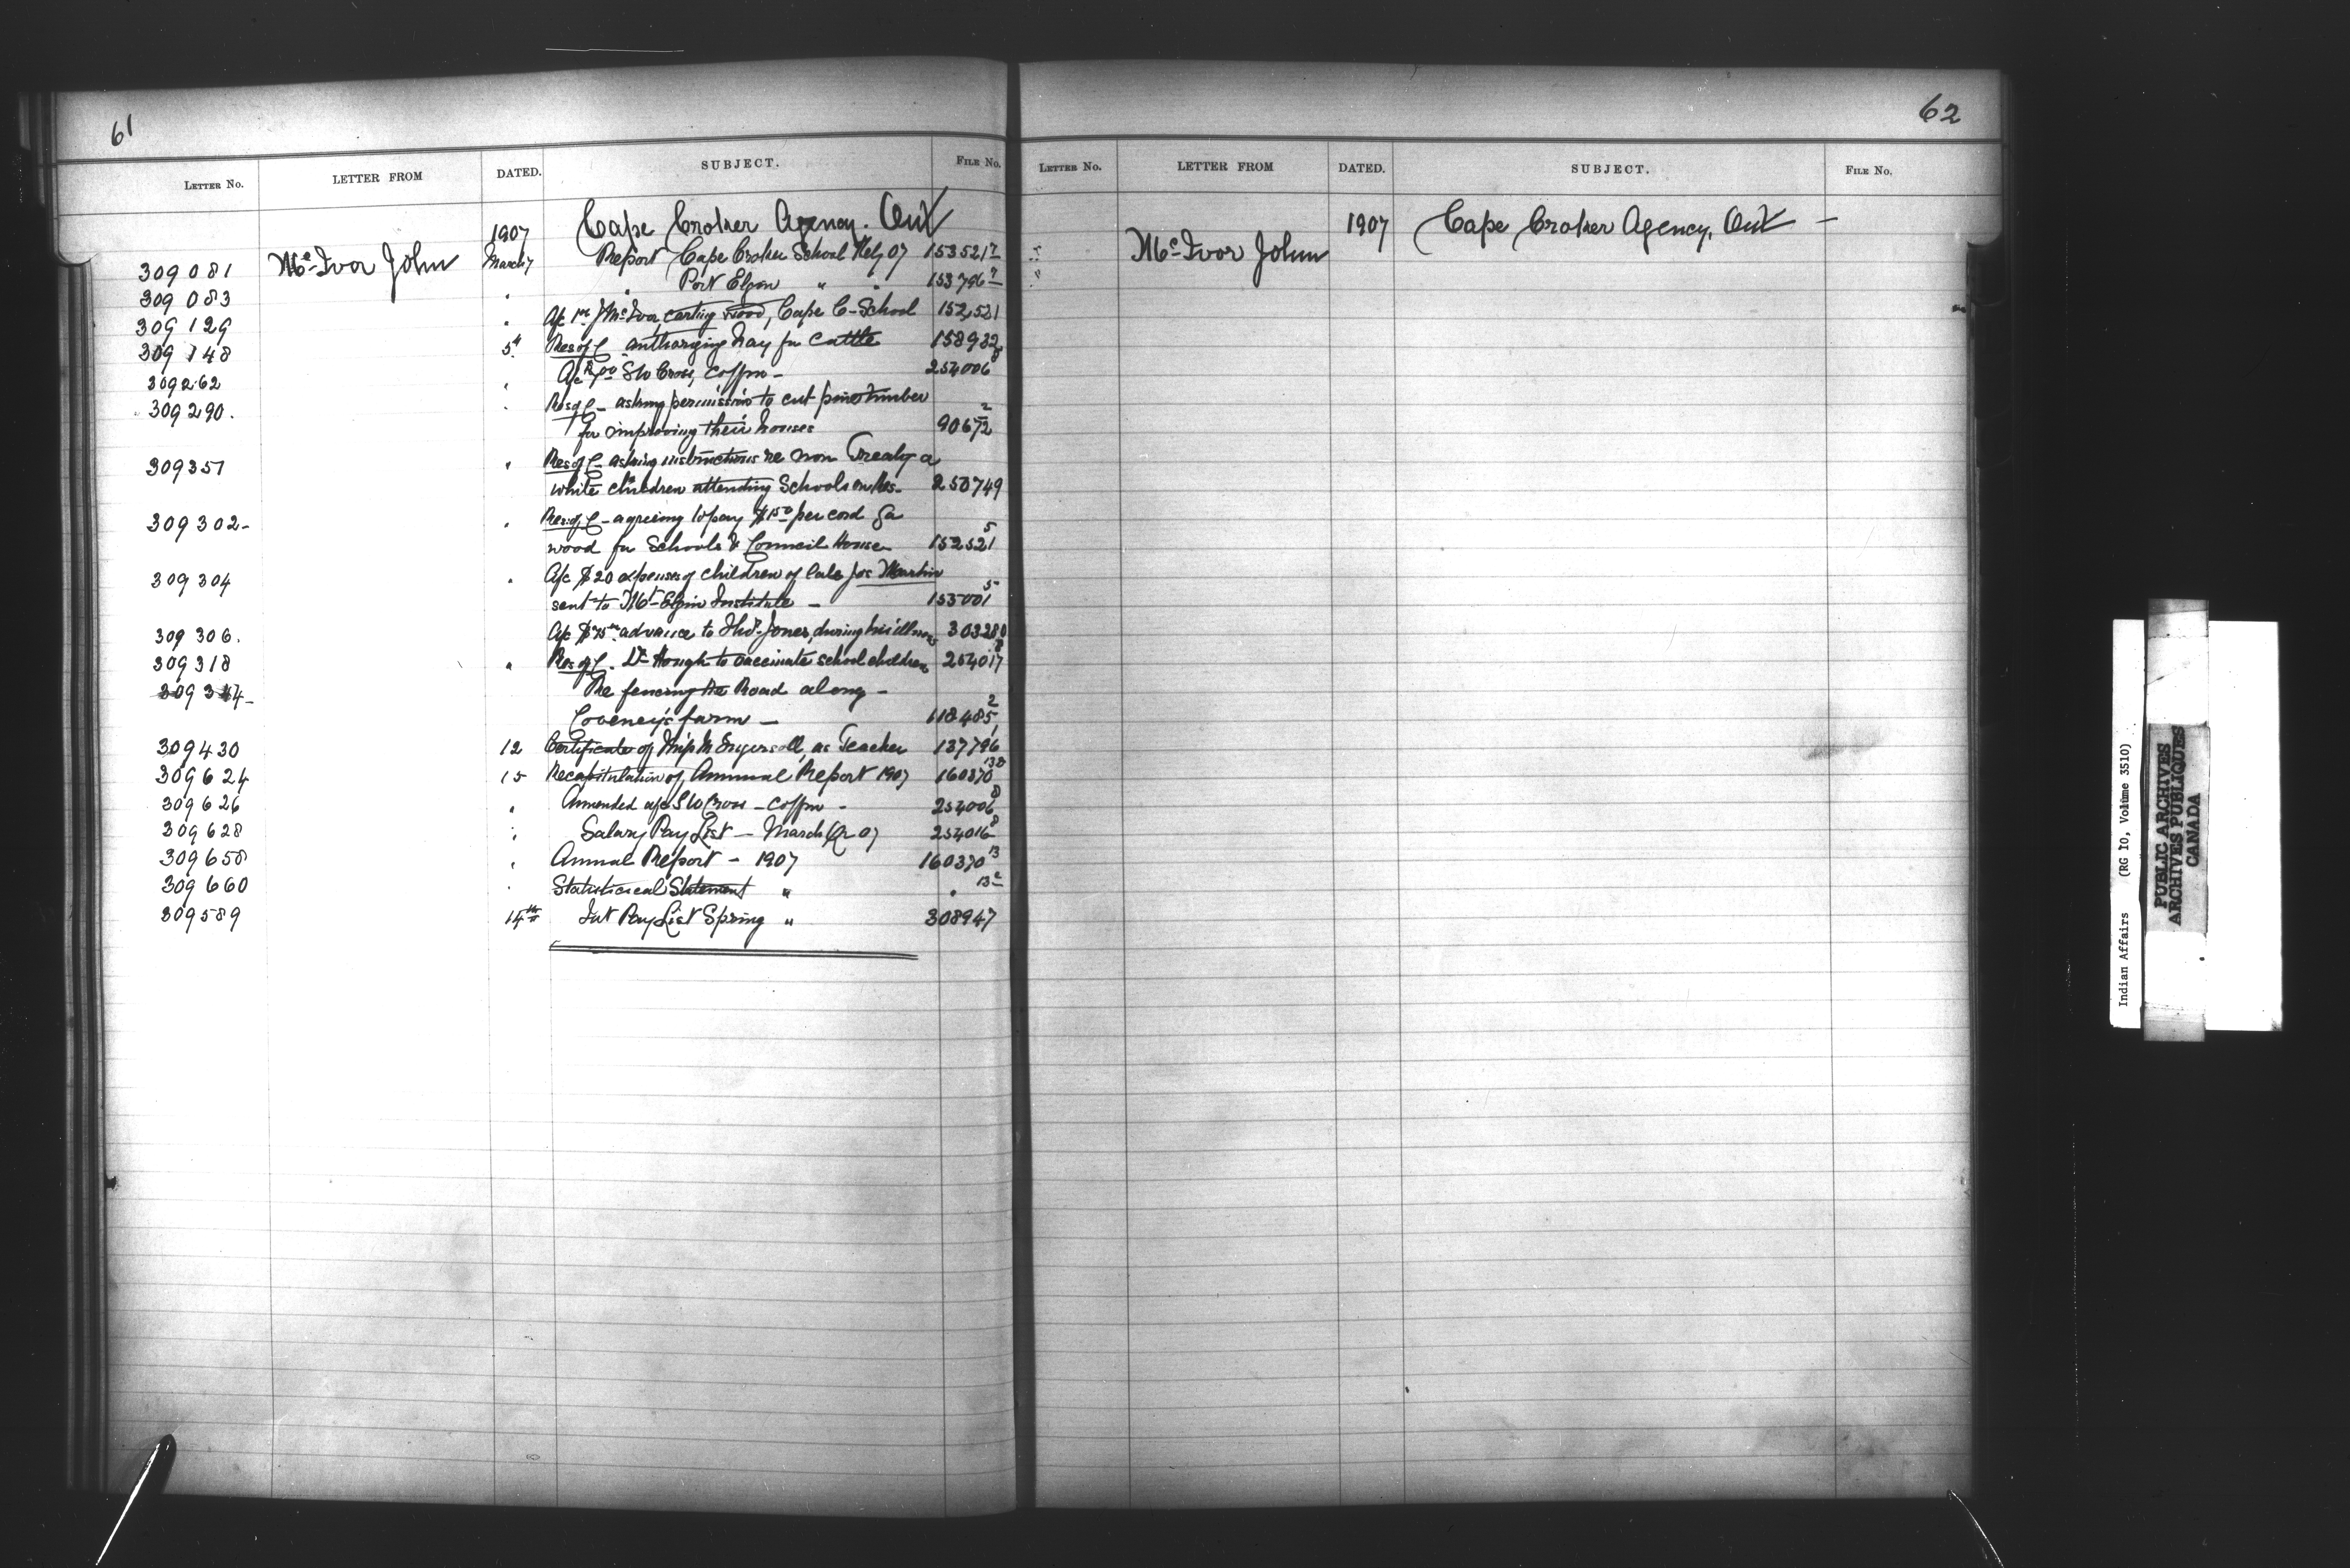 61
LETTER NO. LETTER FROM DATED. SUBJECT. FILE NO.
1907 Cape Croker Agency. Ont
309081 McIvor John March 7 Report Cape Croker School Feby 07 153521
309083 " " Port Elgin " " 153796
309129 " A/c J McIvor carting wood, Cape C-School 152521
309148 5th Res of C authorizing hay for cattle 158932
309262 " A/c S W Cross, coffin - 254006 8
309290. " Res of C - asking permission to cut pine timber
for improving their houses 90672 2
309351 " Res of C - asking instructions re non Treaty &
white children attending Schools on Res- 250749
309302- " Res of C - agreeing to pay $1 50 per cord for
wood for Schools & Council House 152521 5
309304 " A/c $20 expenses of children of late Jos Martin
sent to Mt Elgin Institute - 155001 5
309306. A/c advance to Thos Jones, during his illness 303280
309318 " Res of C. Dr Hough to vaccinate school children 254017 8
Re fencing the Road along -
Coveney's farm - 118485 2
309430 12 Certificate of Miss M Ingersoll, as Teacher 137796 1
309624 15 Recapitulation of Annual Report 1907 160370
309626 " Ammended a/c S W Cross - coffin - 254006 8
309628 " Salary Pay List - March Qr 07 254016 8
309658 " Annual Report - 1907 160370 13
309660 " Statistical Statement " "
309589 14th Int Pay List Spring " 308947
62
LETTER NO. LETTER FROM DATED. SUBJECT. FILE NO.
1907 Cape Croker Agency, Ont -
McIvor John
Indian Affairs (RG 10, Volume 3510)
PUBLIC ARCHIVES
ARCHIVES PUBLIQUES
CANADA